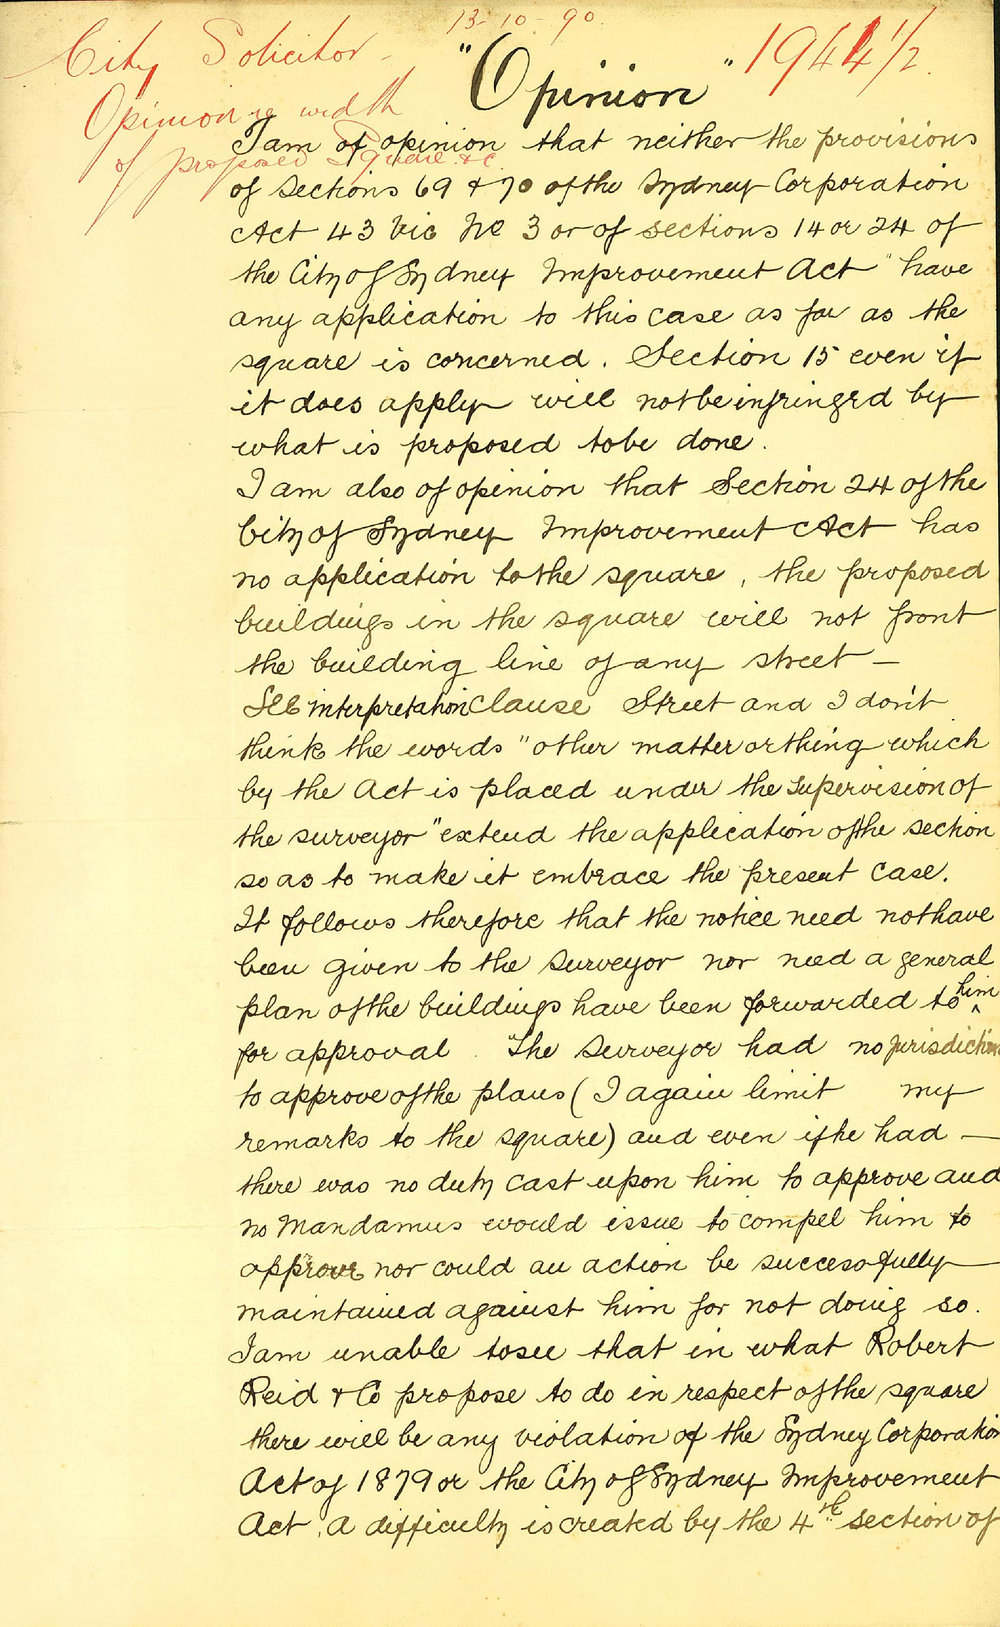 13-10-90.
City Solicitor -
1944 1/2.
"Opinion"
Opinion re width
of proposed Square &c
I am of opinion that neither the provisions
of sections 69 & 70 of the Sydney Corporation
Act 43 Vic No 3 or of sections 14 or 24 of
the City of Sydney Improvement Act" have
any application to this case as far as the
square is concerned. Section 15 even if
it does apply will not be infringed by
what is proposed to be done.
I am also of opinion that Section 24 of the
City of Sydney Improvement Act has
no application to the square, the proposed
buildings in the square will not front
the building line of any street —
See interpretation Clause Street and I don't
think the words "other matter or thing which
by the Act is placed under the supervision of
the surveyor" extend the application of the section
so as to make it embrace the present case.
It follows therefore that the notice need not have
been given to the surveyor nor need a general
plan of the buildings have been forwarded to him
for approval. The Surveyor had no jurisdiction
to approve of the plans (I again limit my
remarks to the square) and even if he had —
there was no duty cast upon him to approve and
no Mandamus would issue to compel him to
approve nor could an action be successfully
maintained against him for not doing so.
I am unable to see that in what Robert
Reid & Co propose to do in respect of the square
there will be any violation of the Sydney Corporation
Act of 1879 or the City of Sydney Improvement
Act, a difficulty is created by the 4th section of